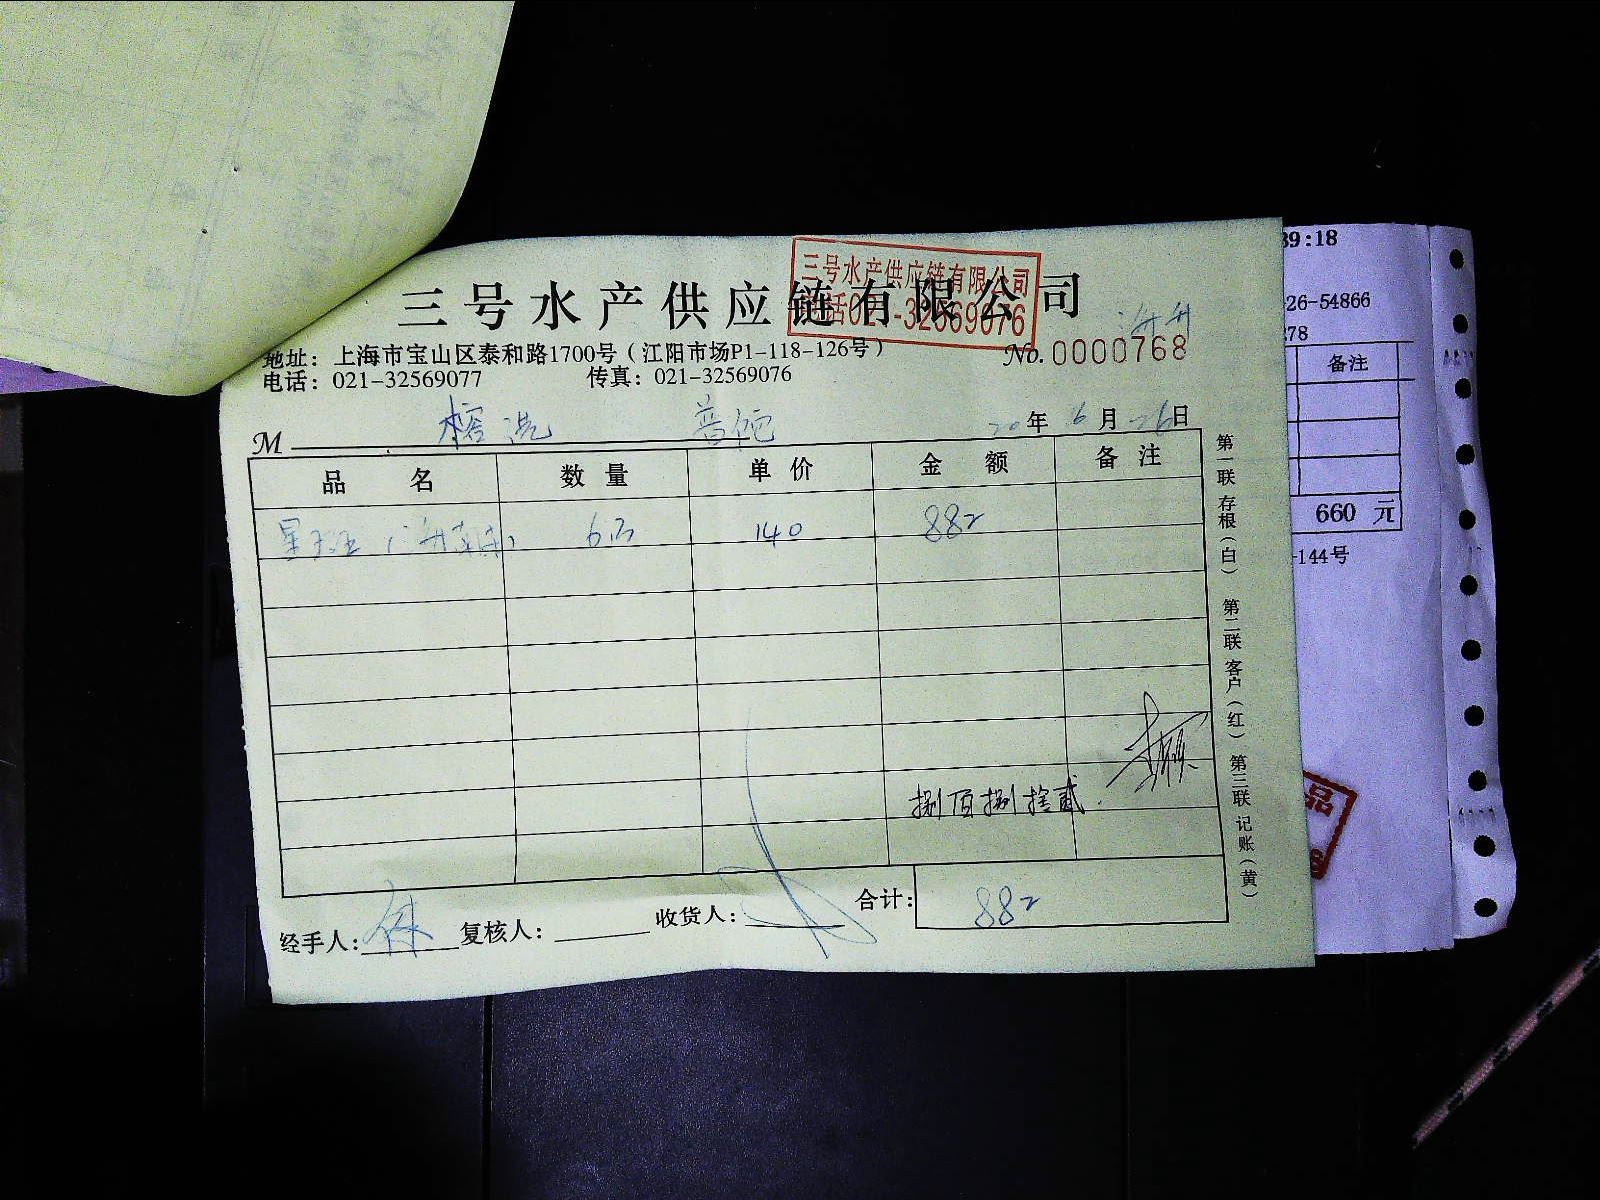 三号水产供应链有限公司
三号水产供应链有限公司
电话021-32569076
地址：上海市宝山区泰和路1700号（江阳市场P1-118-126号）
No.0000768
电话：021-32569077 传真：021-32569076
M 榕港 普陀 20年6月26日
品名 数量 单价 金额 备注
140 882
捌百捌拾贰
合计：882
经手人： 复核人： 收货人：
第一联 存根（白） 第二联 客户（红） 第三联 记账（黄）
39:18
26-54866
278
备注
660 元
-144号
品